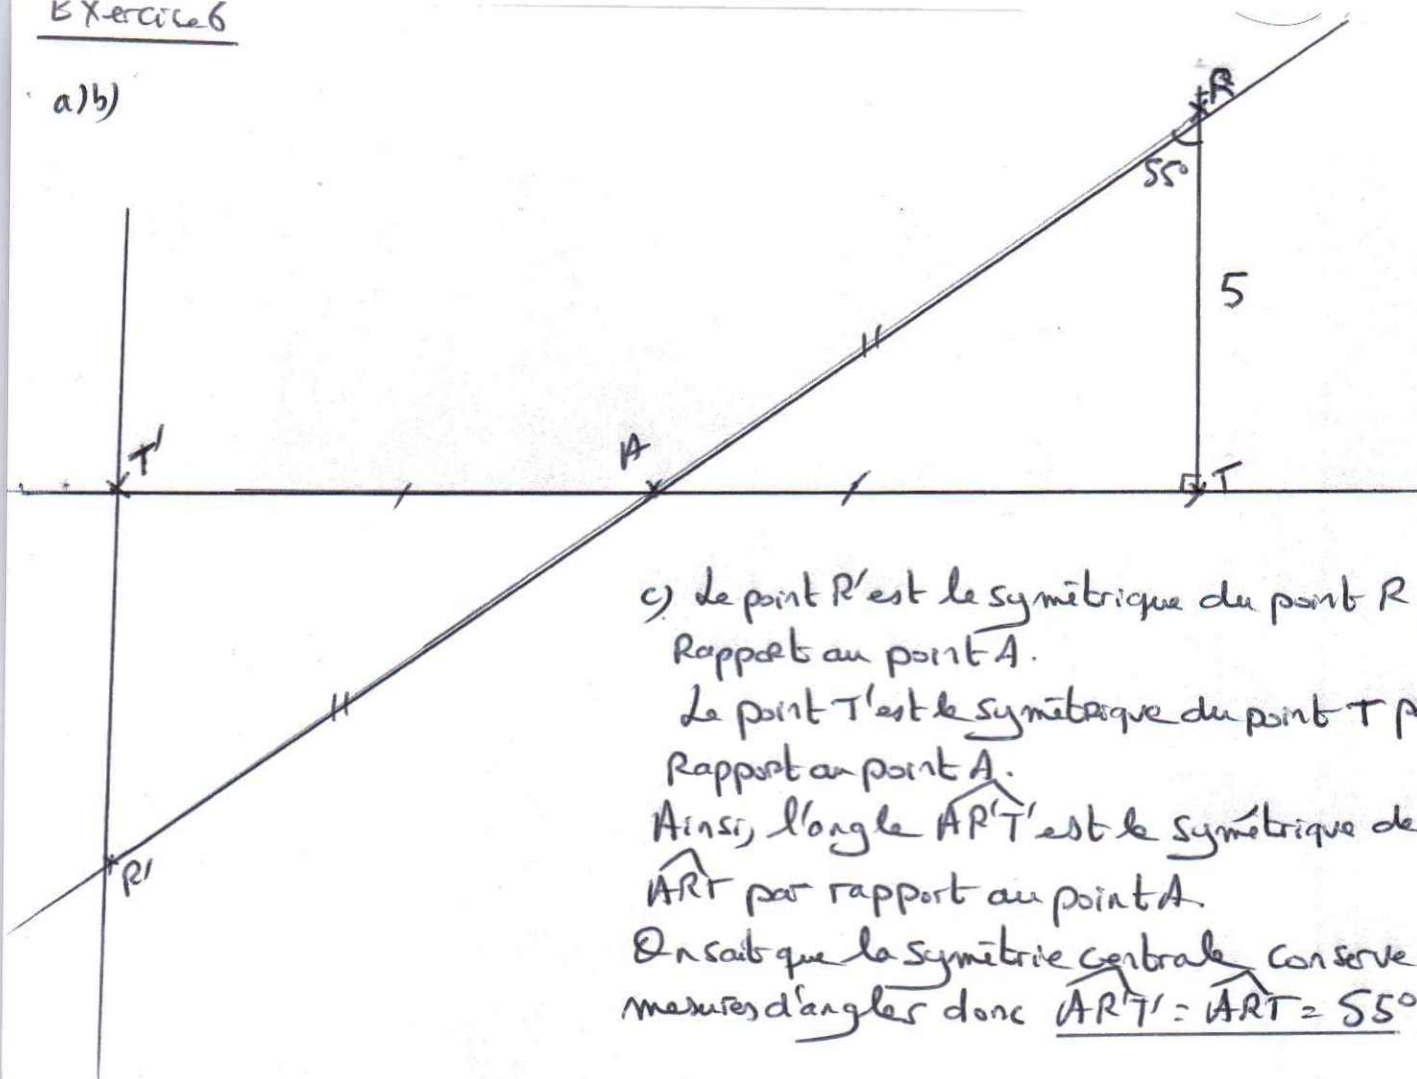 Exercice 6
a)b)
R
55°
5
T'
A
T
R'
c) Le point R' est le symétrique du point R
Rapport au point A.
Le point T' est le symétrique du point T p
Rapport au point A.
Ainsi, l'angle AR'T' est le symétrique de
ART par rapport au point A.
On sait que la symétrie centrale conserve
mesures d'angles donc AR'T' = ART = 55°